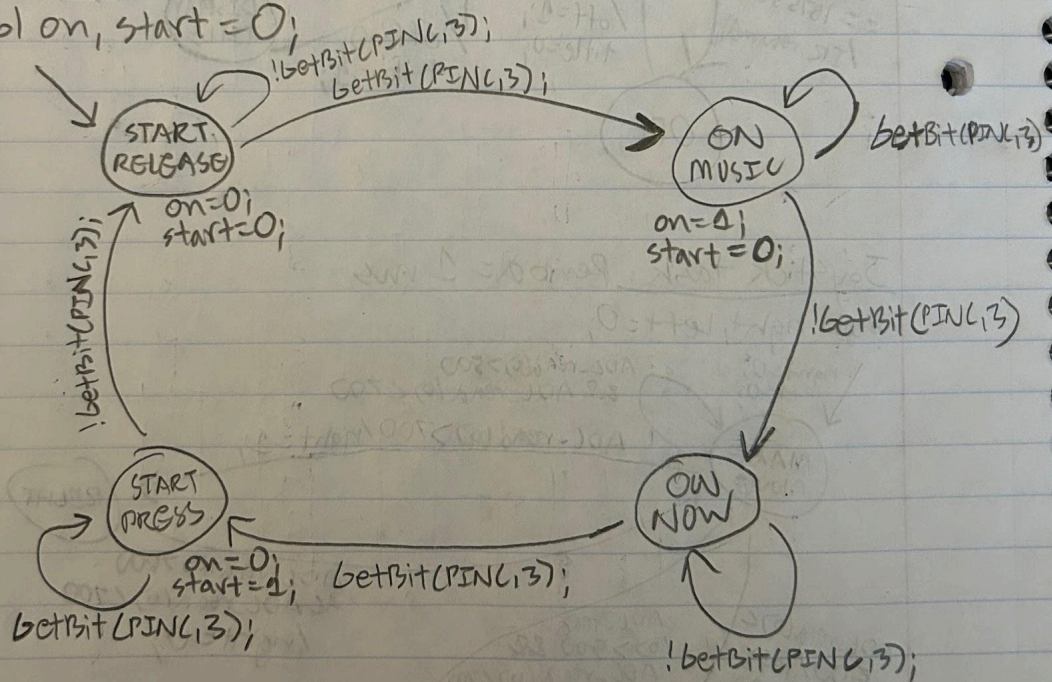 ol on, start = 0;
!GetBit(PINC,3);
GetBit(PINC,3);
START
RELEASE
on=0;
start=0;
ON
MUSIC
on=1;
start=0;
GetBit(PINC,3)
!GetBit(PINC,3);
!GetBit(PINC,3)
START
PRESS
on=0;
start=1;
GetBit(PINC,3);
GetBit(PINC,3);
NOW
!GetBit(PINC,3);